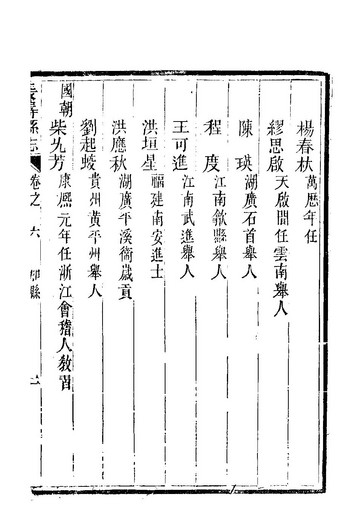 楊春林萬歷年任
繆思啟天啟間任雲南舉人
陳瑛湖廣石首舉人
程度江南歙縣舉人
王可進江南武進舉人
洪垣星福建南安進士
洪應秋湖廣平溪衛歲貢
劉起蛟貴州黃平州舉人
國朝
柴允芳康熙元年任浙江會稽人教習
縣志 卷之六 知縣